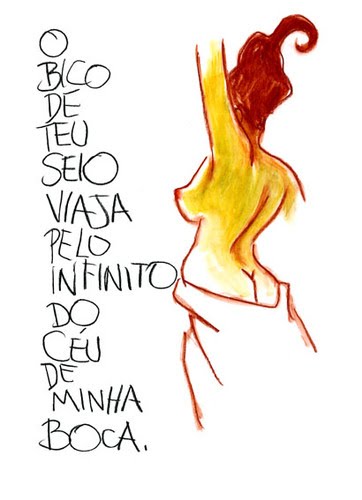 O
BICO
DE
TEU
SEIO
VIAJA
PELO
INFINITO
DO
CÉU
DE
MINHA
BOCA.